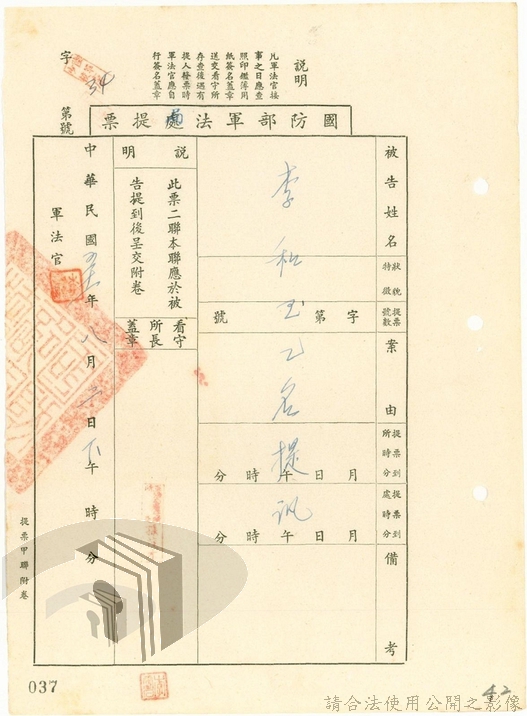 說明
凡軍法官接
事之日應查
照印鑑簿用
紙簽名蓋章
送交看守所
存查後遇有
提人發票時
軍法官應自
行簽名蓋章
字
34
第 號
國防部軍法局提票
被告姓名
李和玉乙名提訊
狀貌特徵
提票號數
字第 號
案由
提票到所時分
月日午時分
提票到處時分
月日午時分
備考
說明
此票二聯本聯應於被
告提到後呈交附卷
看守所長蓋章
中華民國 年八月 日下午 時 分
軍法官
提票甲聯附卷
037
42
請合法使用公開之影像